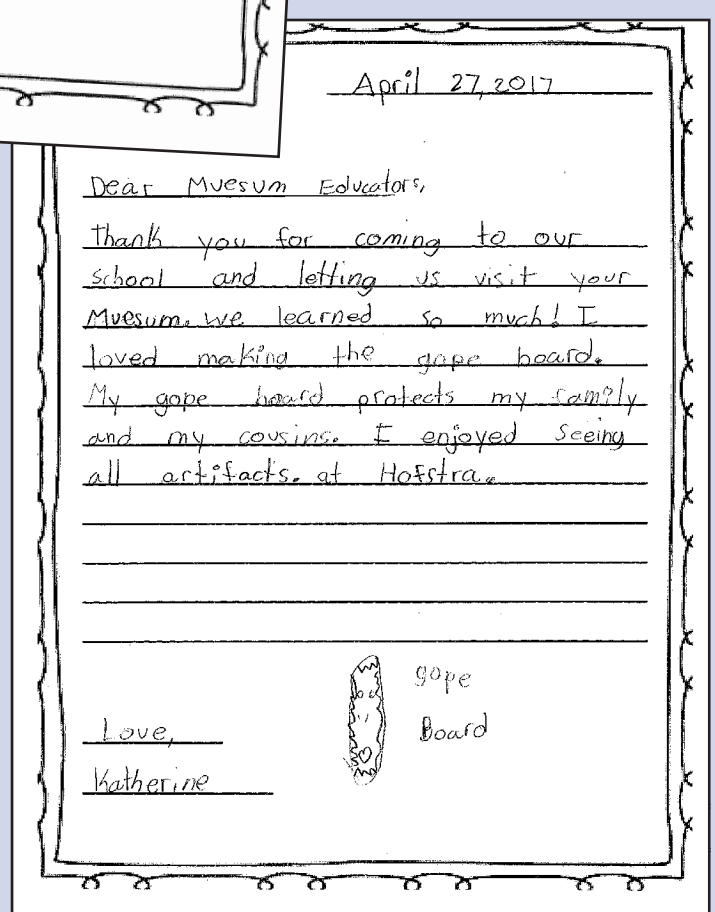 April 27, 2017
Dear Muesum Educators,
Thank you for coming to our
school and letting us visit your
Muesum. we learned so much! I
loved making the gope board.
My gope board protects my family
and my cousins. I enjoyed seeing
all artifacts. at Hofstra.
gope
Board
Love,
Katherine